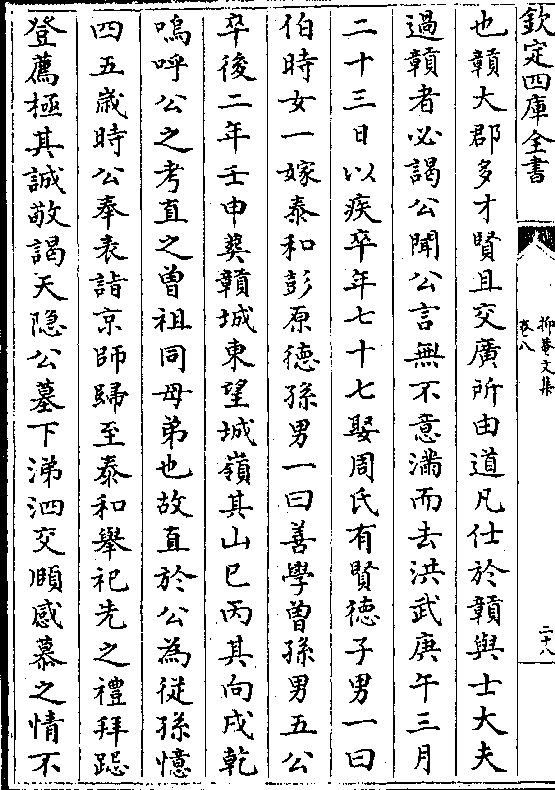 欽定四庫全書
抑菴文集
卷八
二十八
也贛大郡多才賢且交廣所由道凡仕於贛與士大夫
過贛者必謁公聞公言無不意滿而去洪武庚午三月
二十三日以疾卒年七十七娶周氏有賢德子男一曰
伯時女一嫁泰和彭原德孫男一曰善學曾孫男五公
卒後二年壬申葬贛城東望城嶺其山巳丙其向戌乾
嗚呼公之考直之曾祖同母弟也故直於公為從孫憶
四五歲時公奉表詣京師歸至泰和舉祀先之禮拜跽
登薦極其誠敬謁天隐公墓下涕泗交頤感慕之情不